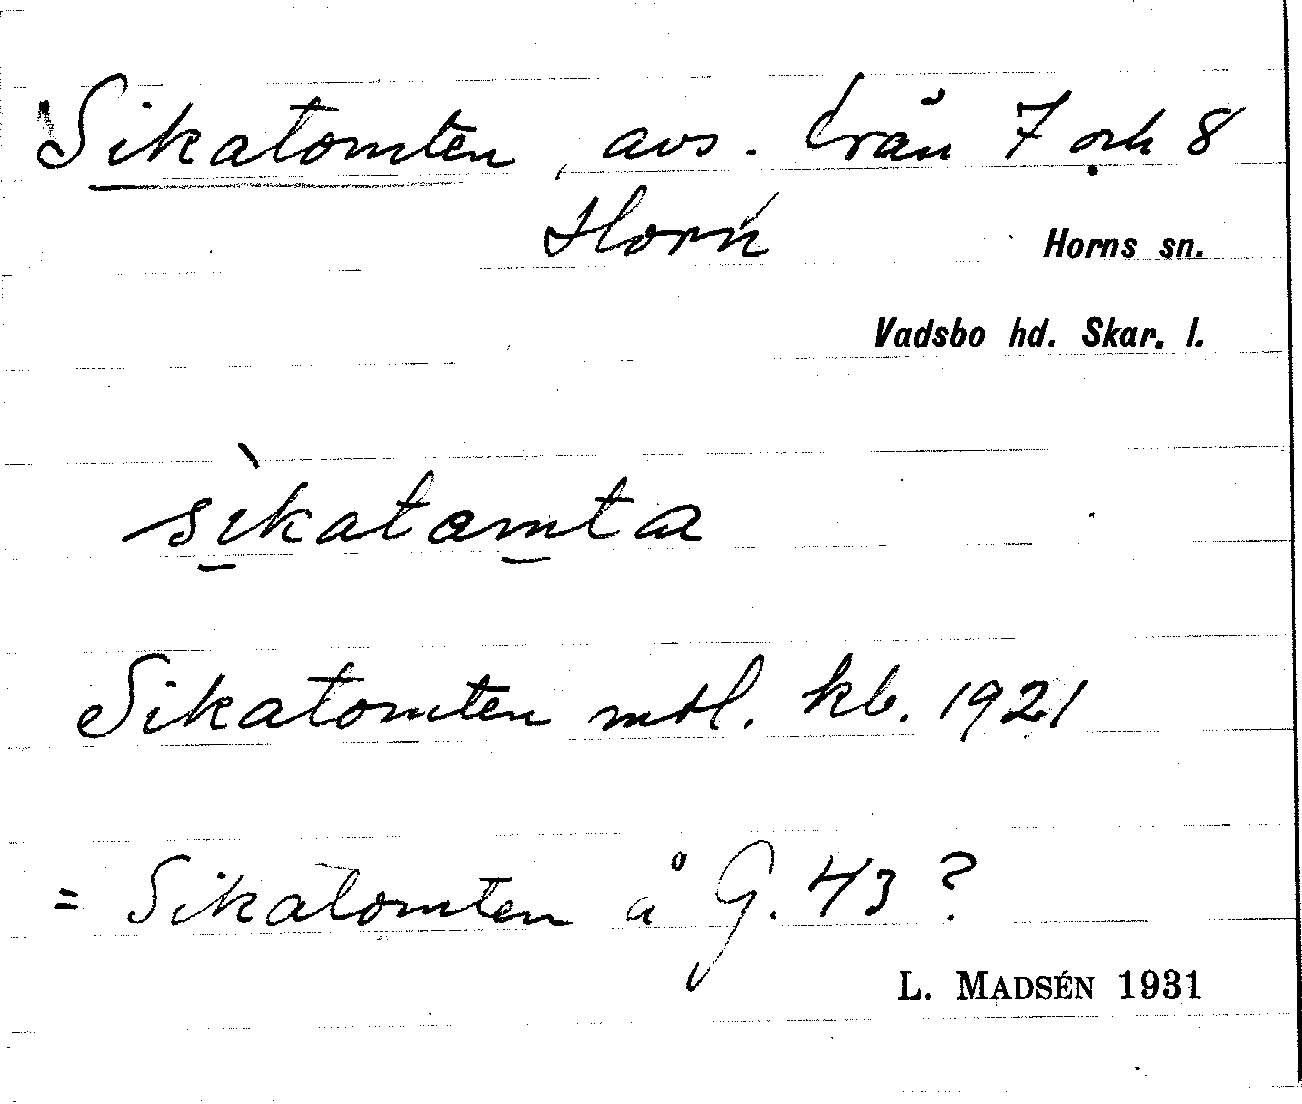 Sikatomten, avs. från 7 och 8
Horn
Horns sn.
Vadsbo hd. Skar. l.
sìkatamta
Sikatomten mtl. kb. 1921
= Sikatomten å G. 43?
L. MADSÉN 1931